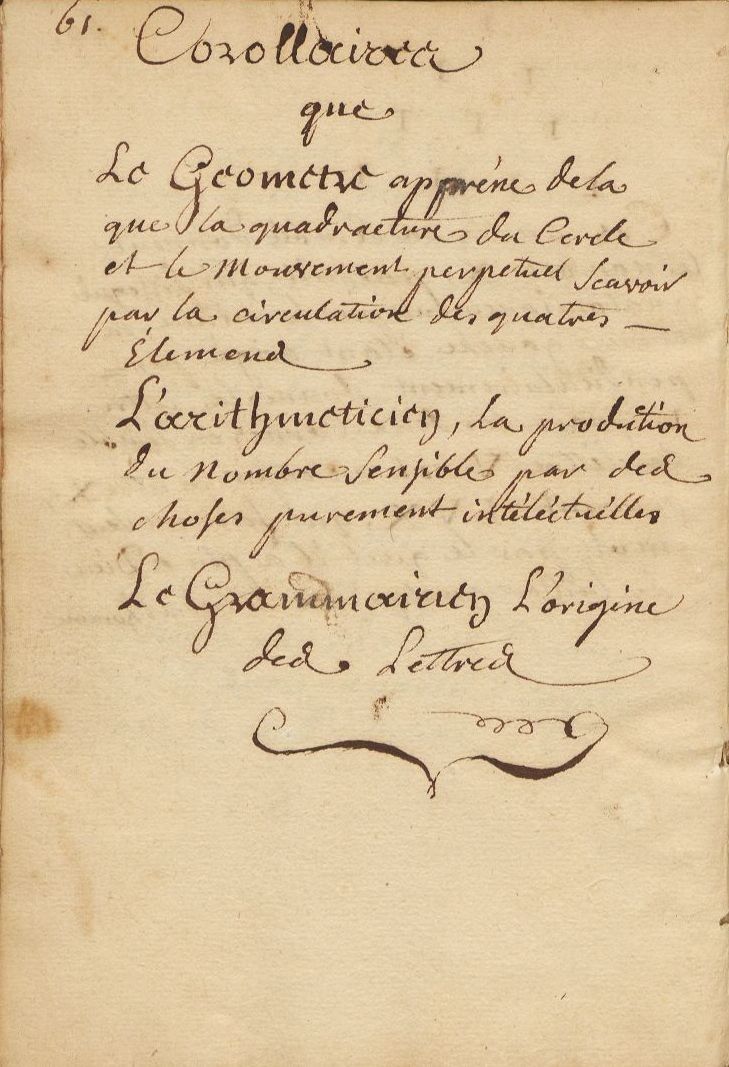 61.
Corollaires
que
Le Geometre appréne dela
que la quadracture du Cercle
et le Mouvement perpetuel Scavoir
par la circulation des quatres
Élemens
L'arithmeticien, La production
du Nombre Sensible par des
choses purement intéléctuélles
Le Grammairien L'origine
des Lettres